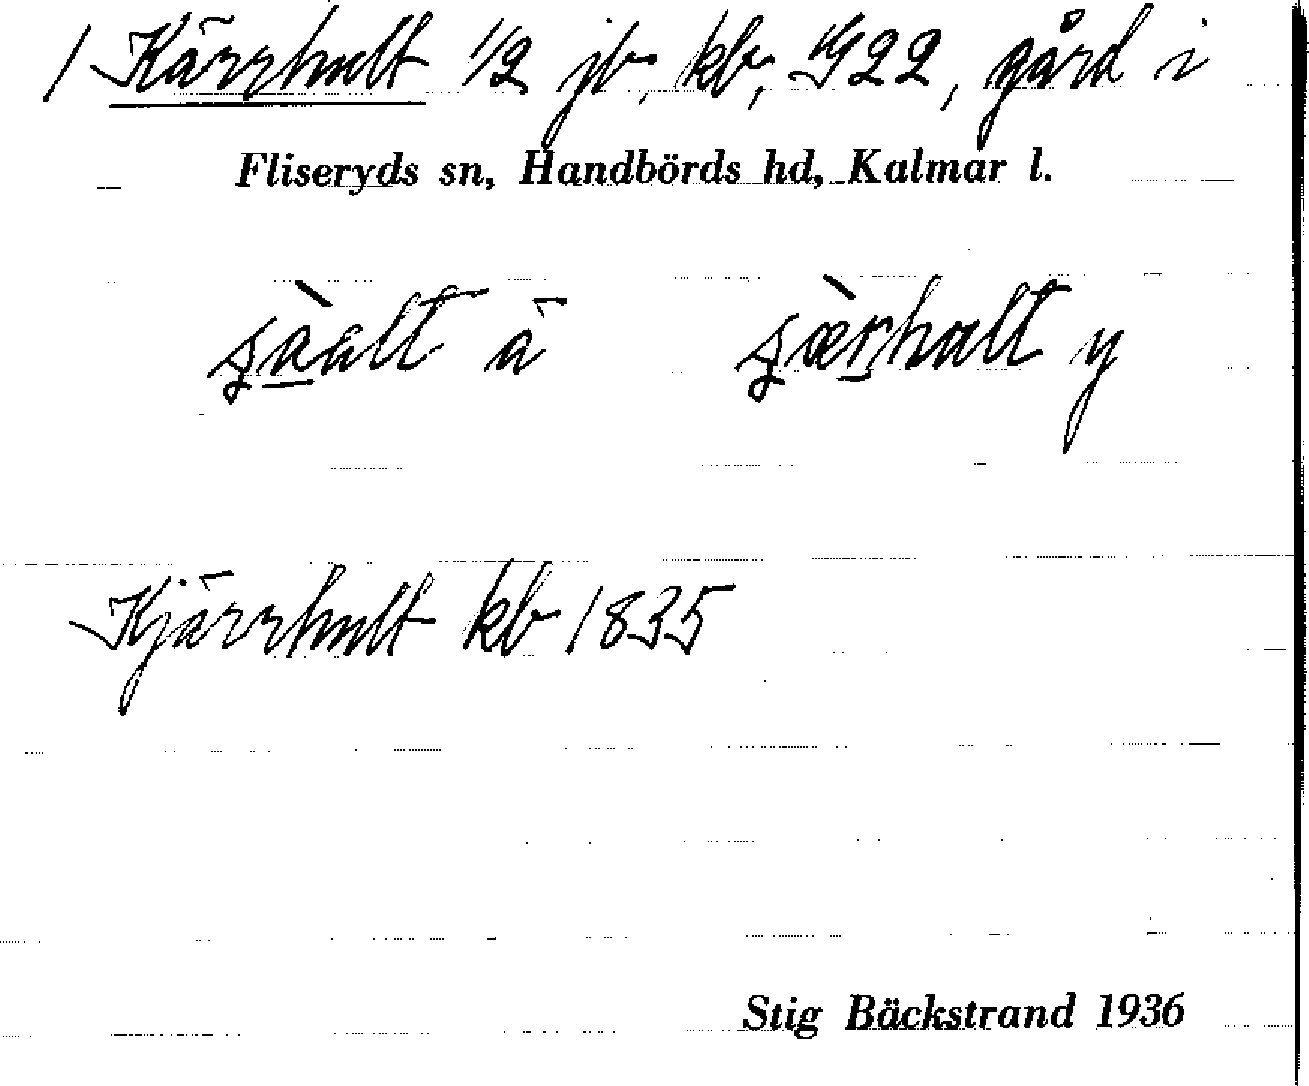 1 Kärrhult 1/2 jb, kb, 1922, gård i
Fliseryds sn, Handbörds hd, Kalmar l.
ä y
Kjärrhult kb 1835
Stig Bäckstrand 1936